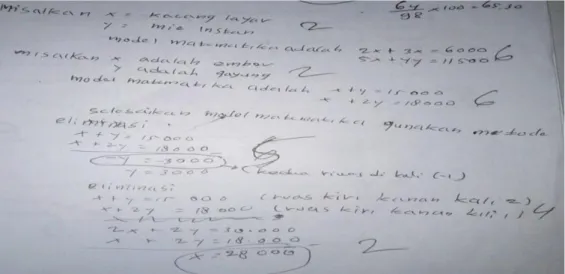 64/98 x 100 = 65,30
Misalkan x = kacang layar 2
y = mie Instan
model matematika adalah 2x + 3x = 6000 6
5x + 4y = 11500
misalkan x adalah ember
y adalah gayung 2
model matematika adalah x + y = 15000
x + 2y = 18000 6
selesaikan model matematika gunakan metode
eliminasi:
x + y = 15 000
x + 2y = 18000
-y = -3000
y = 3000 (kedua ruas di kali (-1)
eliminasi
x + y = 15 000 (ruas kiri kanan kali, 2)
x + 2y = 18000 (ruas kiri kanan kali, 1 4
2x + 2y = 30.000
x + 2y = 18.000
x = 28000 2